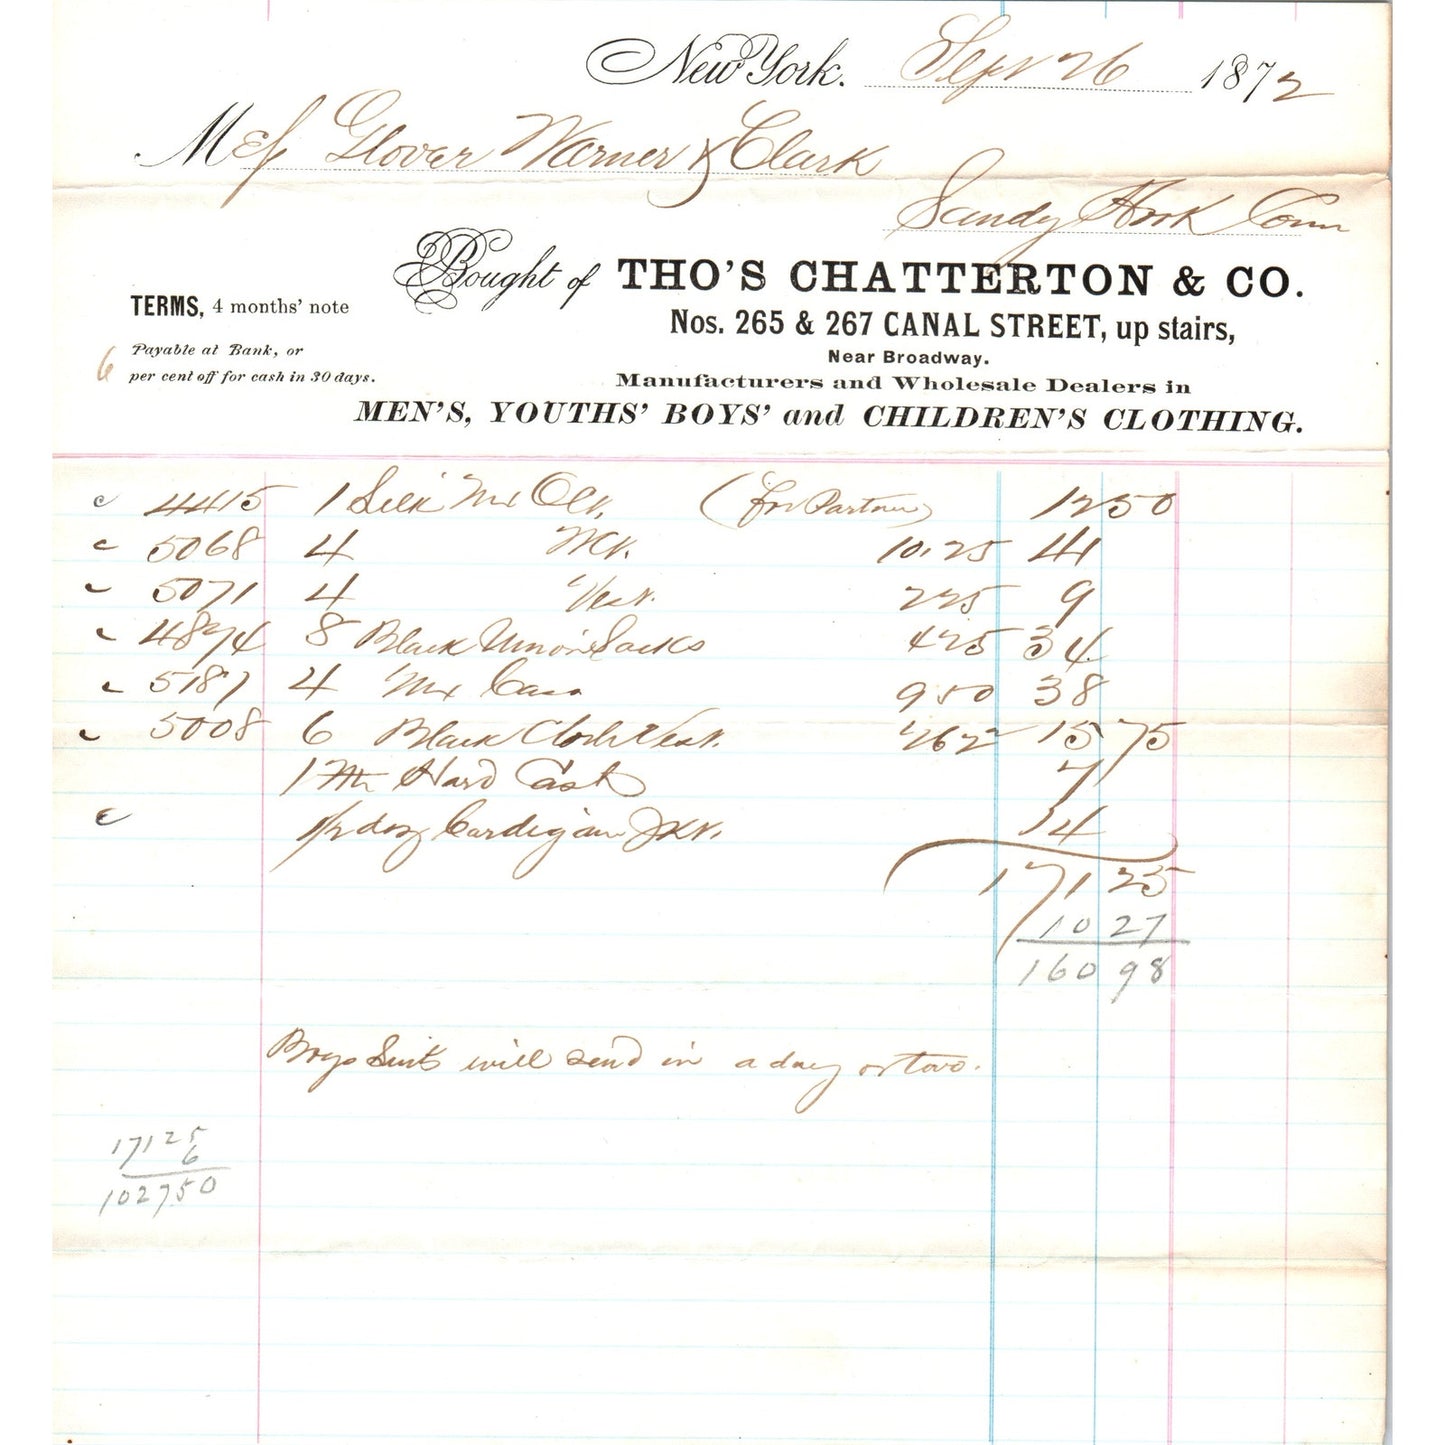 New York. Sept 26 1872
Mess Glover Warner & Clark
Sandy Hook Conn
Bought of THO'S CHATTERTON & CO.
TERMS, 4 months' note
Nos. 265 & 267 CANAL STREET, up stairs,
Payable at Bank, or
Near Broadway.
6 per cent off for cash in 30 days.
Manufacturers and Wholesale Dealers in
MEN'S, YOUTHS' BOYS' and CHILDREN'S CLOTHING.
4415 1 Silk Mx (for Partner) 12 50
5068 4 10.25 41
5071 4 Vest. 225 9
4874 8 Black Union Sacks 425 34
5187 4 Mx Cass 950 38
5008 6 Black Cloth Vest. 262 15 75
1 Hard Cash 7
1/2 doz Cardigan JKt. 14
171 25
10 27
160 98
Boys Suits will send in a day or two.
171 25
6
102750